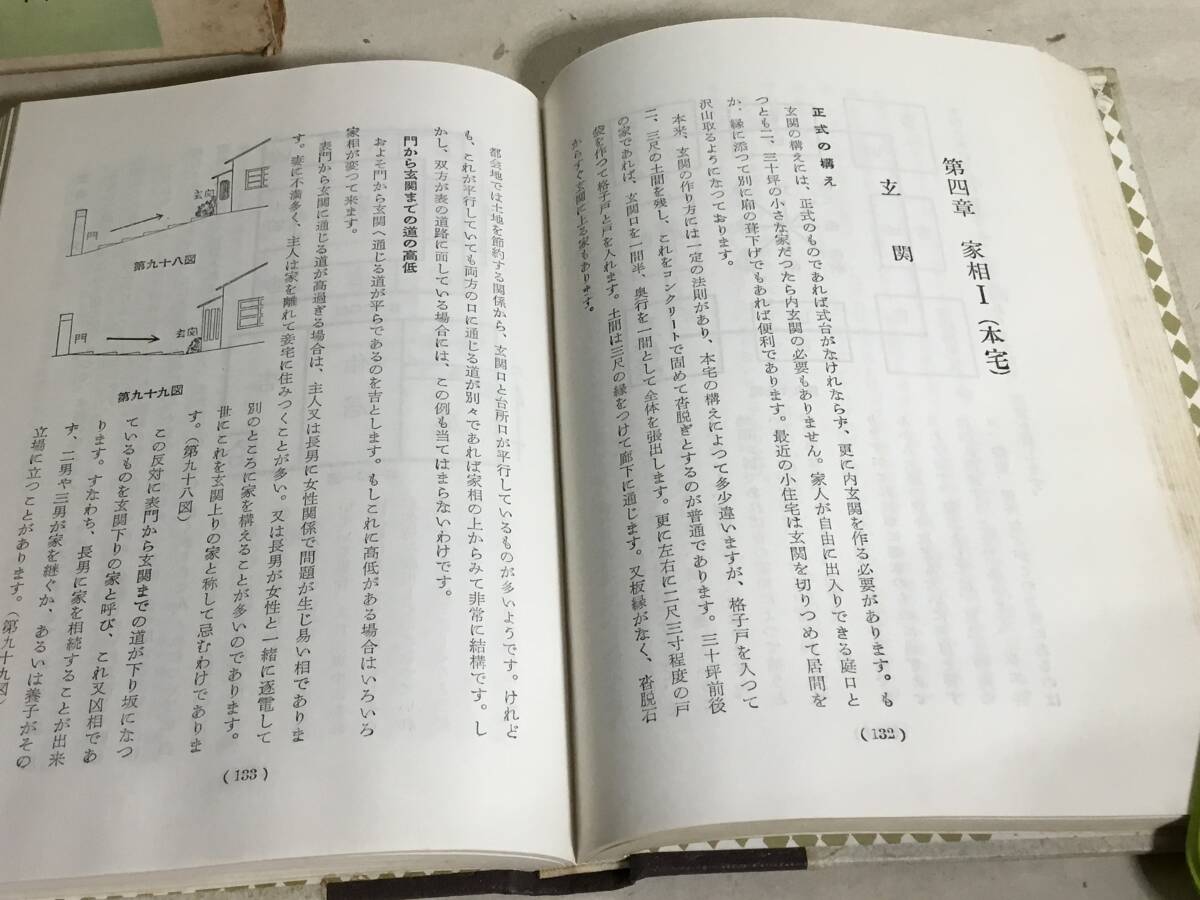 第四章　家相Ⅰ（本宅）
玄　関
正式の構え
玄関の構えには、正式のものであれば式台がなければならず、更に内玄関を作る必要があります。も
つとも二、三十坪の小さな家だつたら内玄関の必要もありません。家人が自由に出入りできる庭口と
か、縁に添つて別に廂の葺下げでもあれば便利であります。最近の小住宅は玄関を切りつめて居間を
沢山取るようになつております。
本来、玄関の作り方には一定の法則があり、本宅の構えによつて多少違いますが、格子戸を入つて
二、三尺の土間を残し、これをコンクリートで固めて沓脱ぎとするのが普通であります。三十坪前後
の家であれば、玄関口を一間半、奥行を一間として全体を張出します。更に左右に二尺三寸程度の戸
袋を作つて格子戸と戸を入れます。土間は三尺の縁をつけて廊下に通じます。又板縁がなく、沓脱石
からすぐ玄関に上る家もあります。
（132）
都会地では土地を節約する関係から、玄関口と台所口が平行しているものが多いようです。けれど
も、これが平行していても両方の口に通じる道が別々であれば家相の上からみて非常に結構です。し
かし、双方が表の道路に面している場合には、この例も当てはまらないわけです。
門から玄関までの道の高低
およそ門から玄関へ通じる道が平らであるのを吉とします。もしこれに高低がある場合はいろいろ
家相が変つて来ます。
表門から玄関に通じる道が高過ぎる場合は、主人又は長男に女性関係で問題が生じ易い相でありま
す。妻に不満多く、主人は家を離れて妾宅に住みつくことが多い。又は長男が女性と一緒に逐電して
別のところに家を構えることが多いのであります。
世にこれを玄関上りの家と称して忌むわけでありま
す。（第九十八図）
この反対に表門から玄関までの道が下り坂になつ
ているものを玄関下りの家と呼び、これ又凶相であ
ります。すなわち、長男に家を相続することが出来
ず、二男や三男が家を継ぐか、あるいは養子がその
立場に立つことがあります。（第九十九図）
門
玄関
第九十八図
門
玄関
第九十九図
（133）